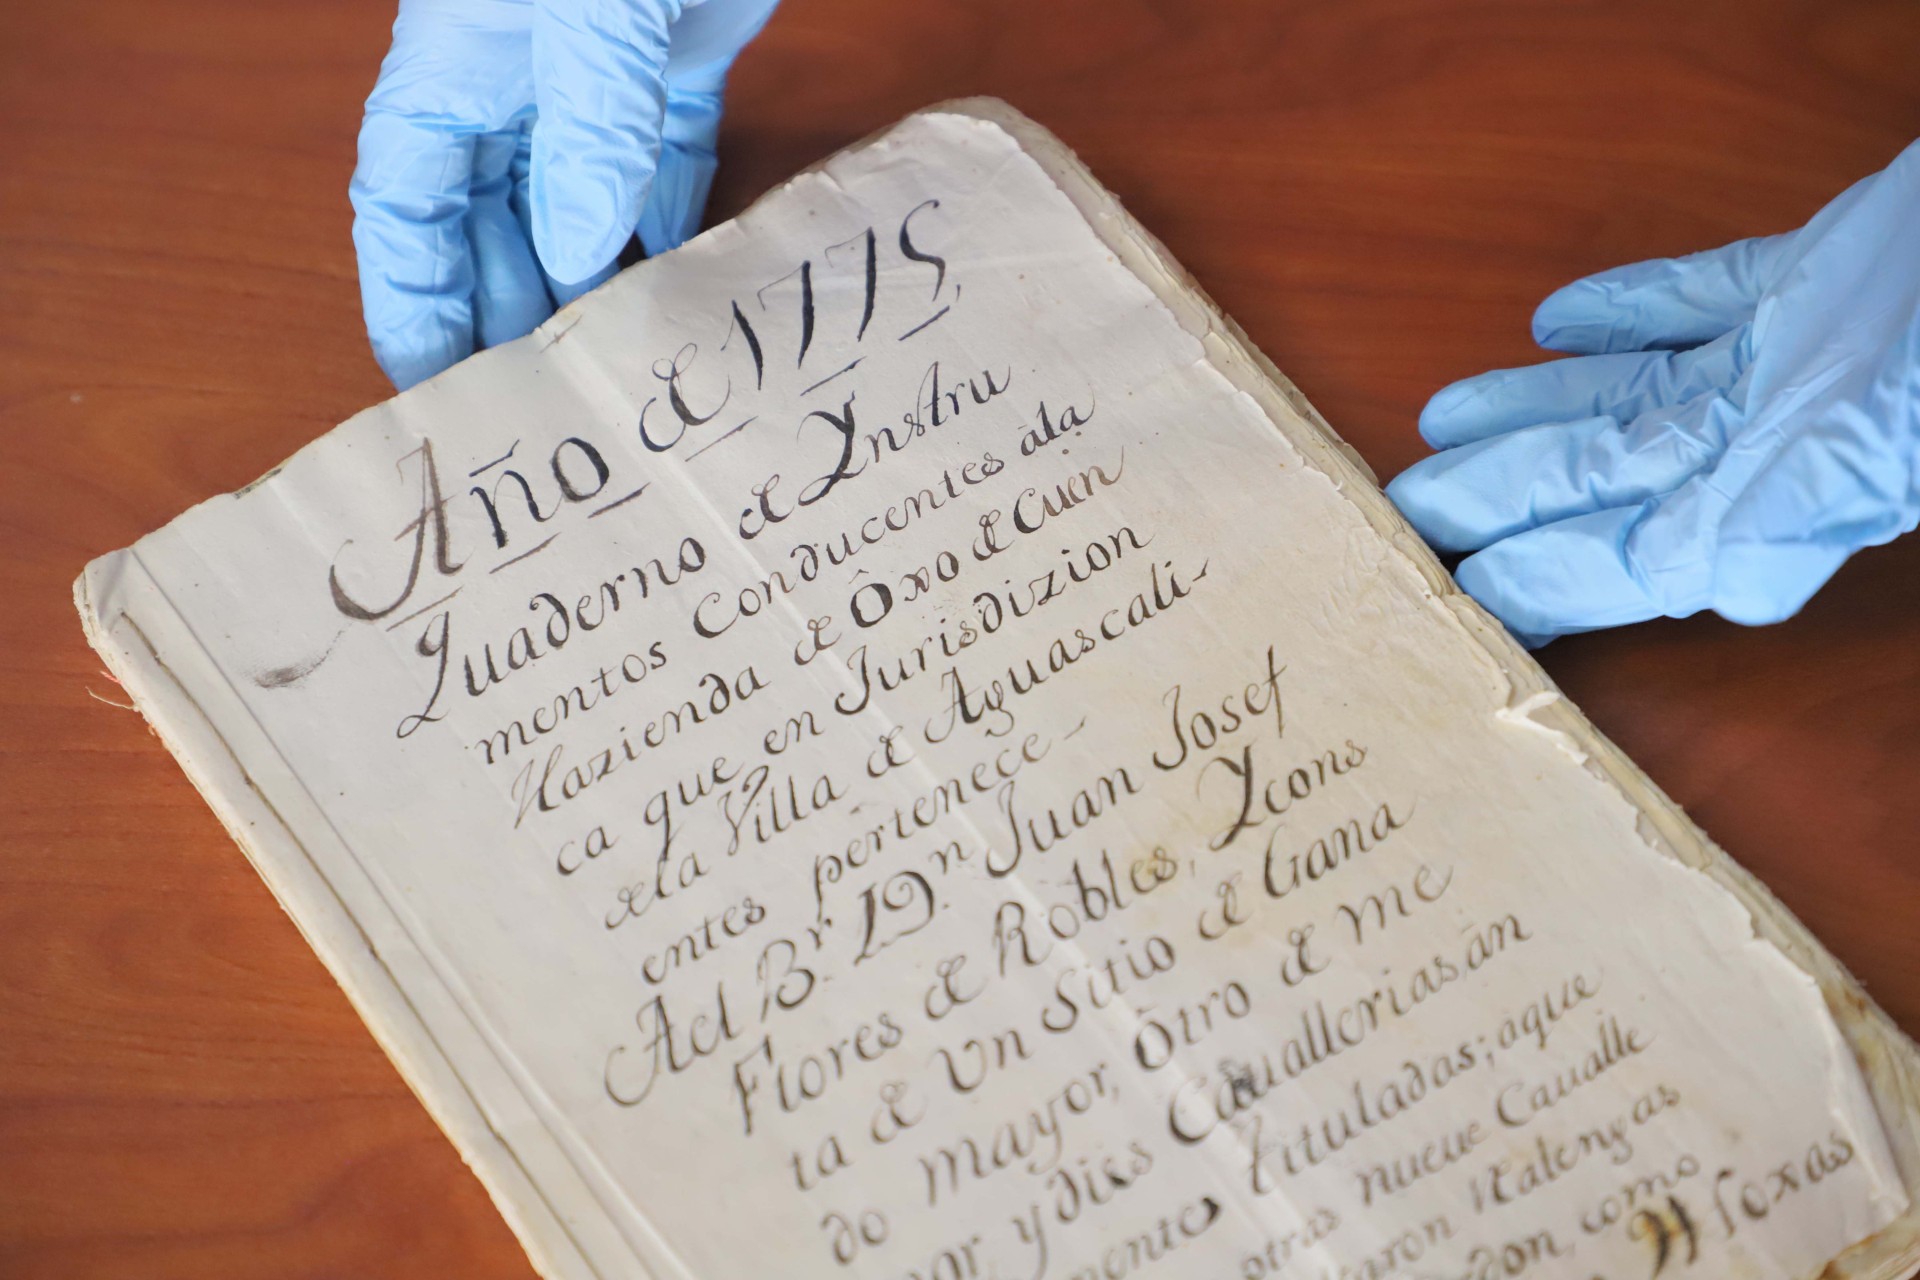 Año de 1775
Quaderno de Ynstru
mentos Conducentes ála
Hazienda de Ôxo de Cuen
ca que en Jurisdizion
dela Villa de Aguascali-
entes pertenece-
Ael B.r D.n Juan Josef
Flores de Robles, Ycons
ta de Un Sitio de Gana
do mayor, Ôtro de me
nor, y diés Cauallerias, án
mente, tituladas; aque
otras nueue CauALLe
Realengas
como
foxas